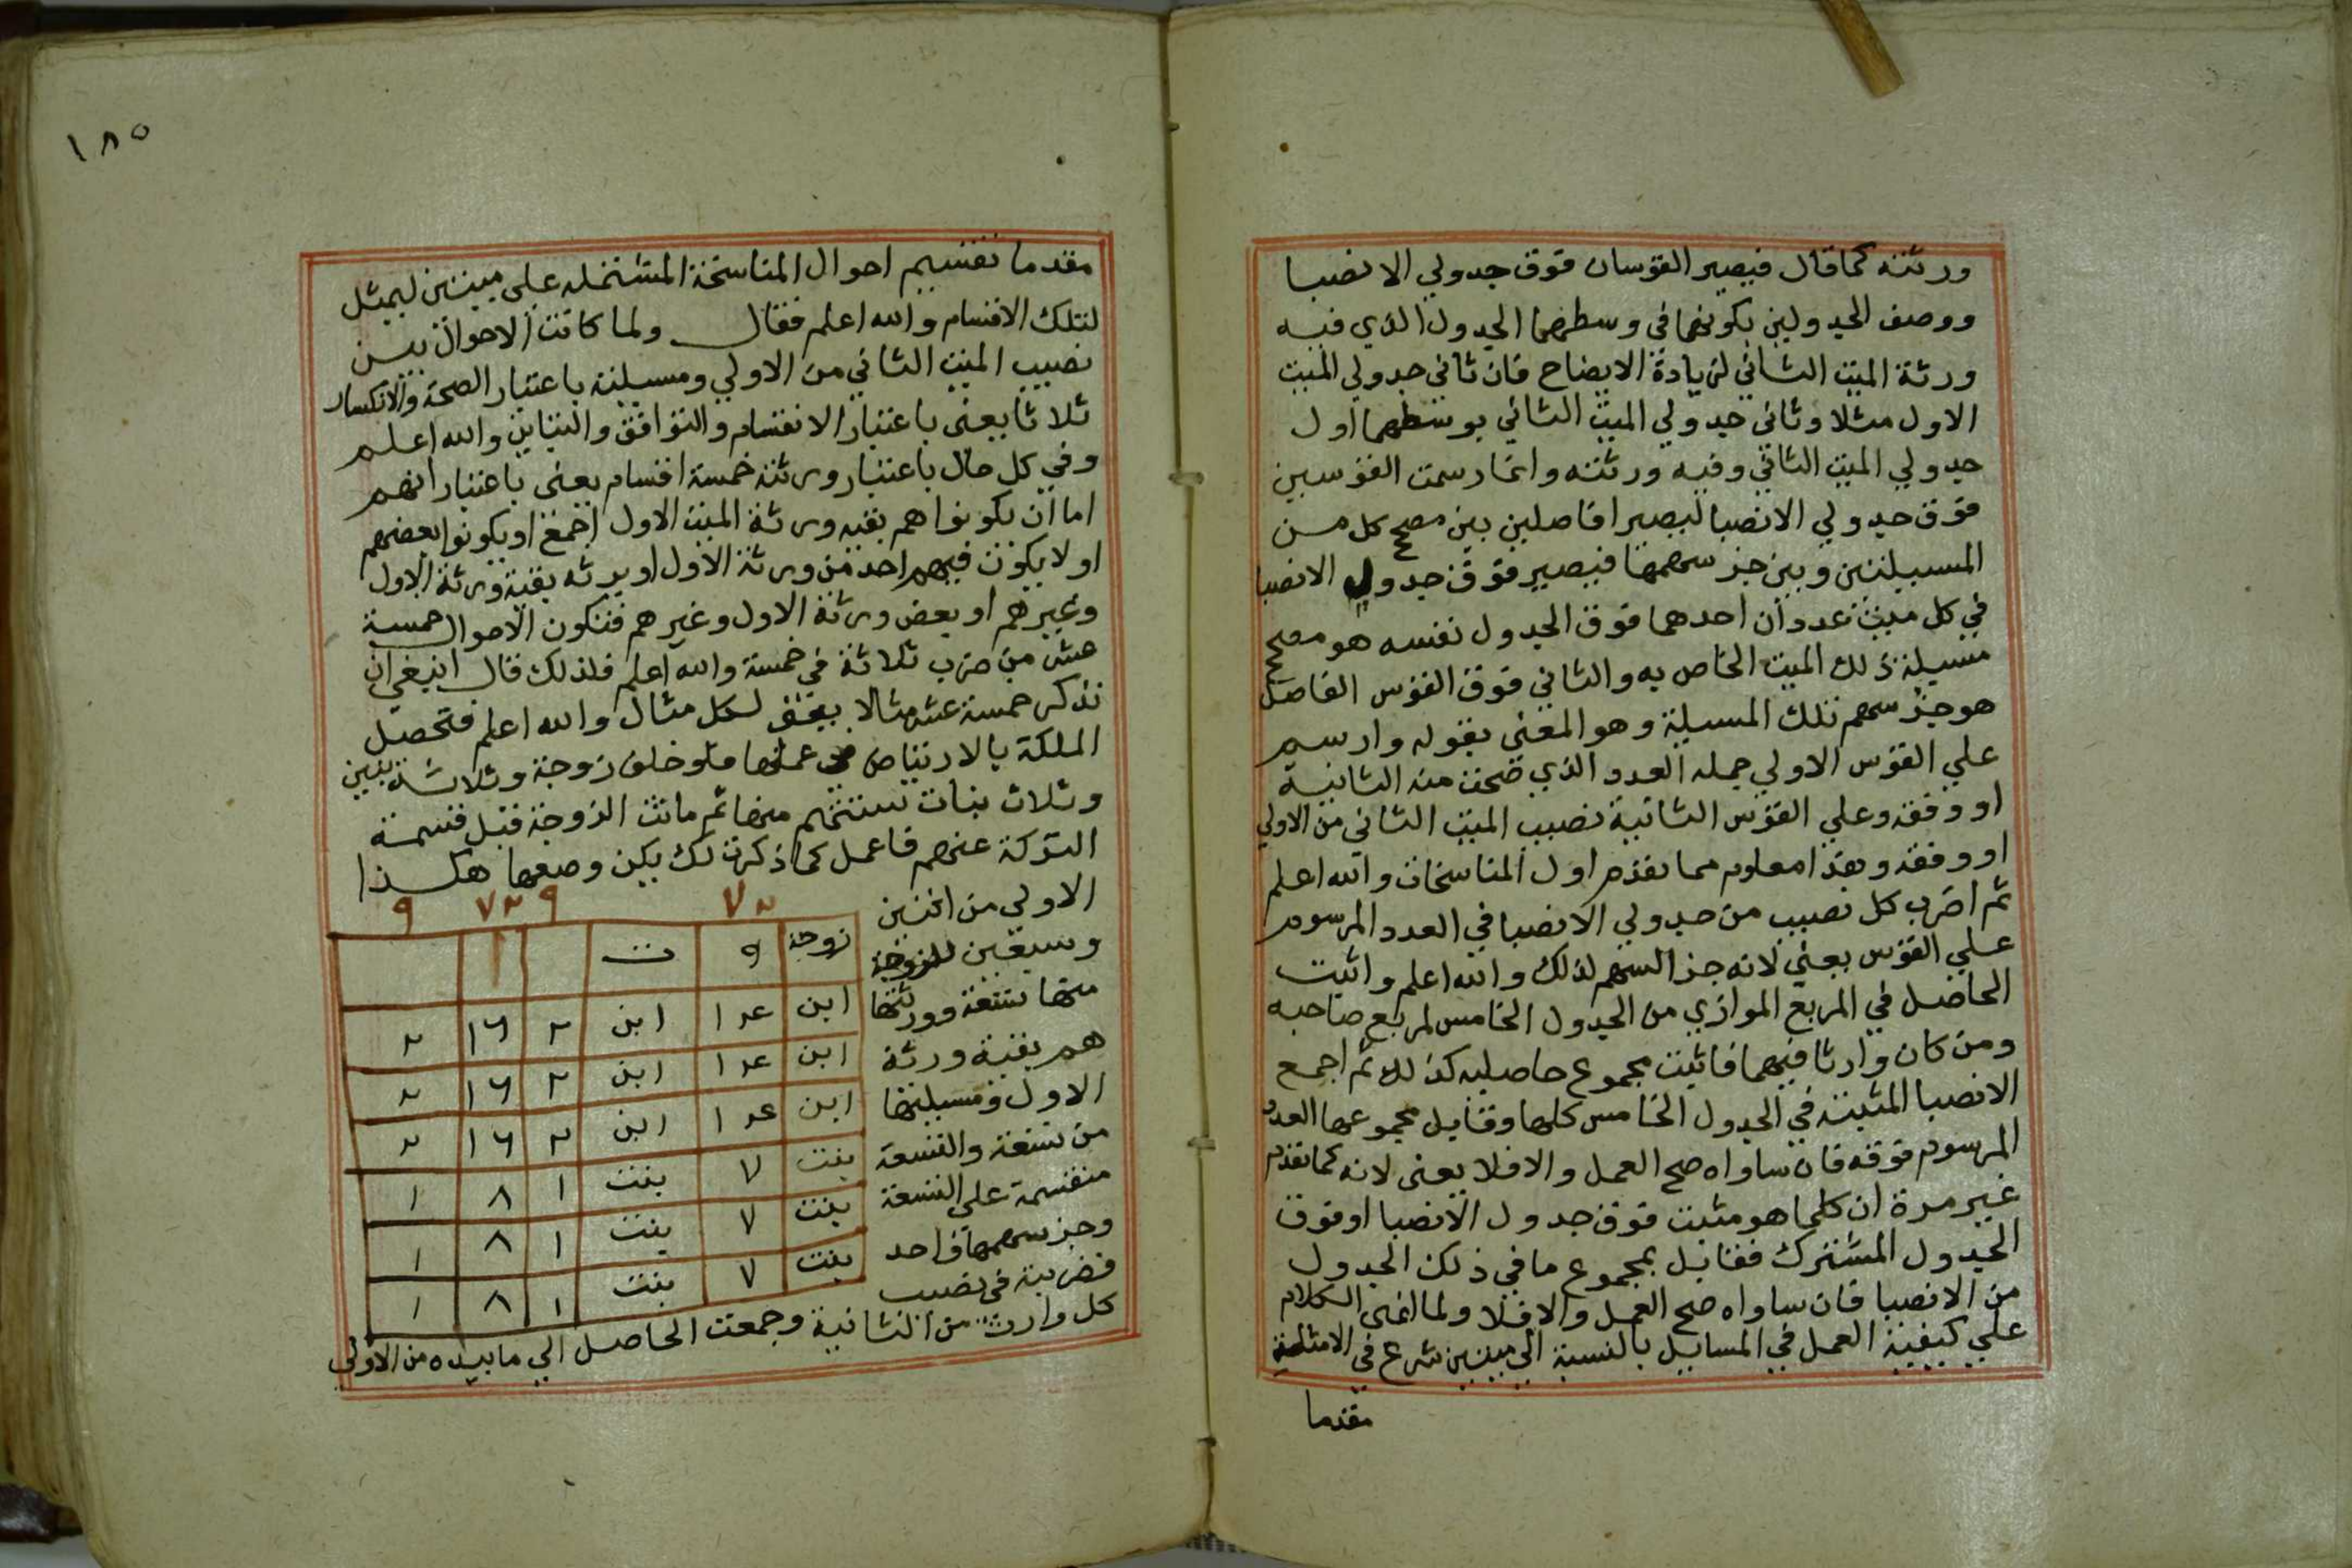 ورثته كما قال فيصير القوسان فوق جدولي الانصبا
ووصف الجدولين بكونهما في وسطهما الجدول الذي فيه
ورثة الميت الثاني لزيادة الايضاح فان ثاني جدولي الميت
الاول مثلا وثاني جدولي الميت الثاني بوسطهما اول
جدولي الميت الثاني وفيه ورثته وانما رسمت القوسين
فوق جدولي الانصبا ليصيرا فاصلين بين مصحح كل من
المسيلتين وبين جز سهمها فيصير فوق جدول الانصبا
في كل ميت عددان احدهما فوق الجدول نفسه هو مصحح
مسيلة ذلك الميت الخاص به والثاني فوق القوس الفاصل
هو جز سهم تلك المسيلة وهو المعنى بقوله وارسم
علي القوس الاولي جمله العدد الذي صحت منه الثانية
او وفقه وعلي القوس الثانية نصيب الميت الثاني من الاولي
او وفقه وهذا معلوم مما تقدم اول المناسخات والله اعلم
ثم اضرب كل نصيب من جدولي الانصبا في العدد المرسوم
علي القوس يعني لانه جز السهم لذلك والله اعلم واثبت
الحاصل في المربع الموازي من الجدول الخامس لمربع صاحبه
ومن كان وارثا فيهما فاثبت مجموع حاصليه كذلك ثم اجمع
الانصبا المثبتة في الجدول الخامس كلها وقابل مجموعها العدد
المرسوم فوقه فان ساواه صح العمل والا فلا يعني لانه كما تقدم
غير مرة ان كلما هو مثبت فوق جدول الانصبا او فوق
الجدول المشترك فقابل بمجموع ما في ذلك الجدول
من الانصبا فان ساواه صح العمل والا فلا ولما انهى الكلام
علي كيفية العمل في المسايل بالنسبة الي ميتين شرع في الامثلة
مقدما
١٨٥
مقدما تقسيم احوال المناسخة المشتملة علي ميتين ليمثل
لتلك الاقسام والله اعلم فقال ولما كانت الاحوال بين
نصيب الميت الثاني من الاولي ومسيلته باعتبار الصحة والانكسار
ثلاثا يعني باعتبار الانقسام والتوافق والتباين والله اعلم
وفي كل حال باعتبار ورثته خمسة اقسام يعني باعتبار انهم
اما ان يكونوا هم بقيه ورثة الميت الاول اجمع او يكونوا بعضهم
او لا يكون فيهم احد من ورثة الاول او يرثه بقية ورثة الاول
وغيرهم او بعض ورثة الاول وغيرهم فتكون الاحوال خمسة
عشر من ضرب ثلاثة في خمسة والله اعلم فلذلك قال انبغي ان
نذكر خمسة عشر مثالا لكل مثال والله اعلم فتحصل
الملكة بالارتياض في عملها فلو خلف زوجة وثلاثة بنين
وثلاث بنات ستتهم منها ثم ماتت الزوجة قبل قسمة
التركة عنهم فاعمل كما ذكرت لك يكن وضعها هكذا
الاولي من اثنين
وسبعين للزوجة
منها تسعة وورثتها
هم بقية ورثة
الاول ومسيلتها
من تسعة والتسعة
منقسمة علي التسعة
وجز سهمها واحد
فضربته في نصيب
كل وارث من الثانية وجمعت الحاصل الي ما بيده من الاولي
٧٢ ٩ ٧٢ ٩
زوجة ٩ ت
ابن ١٤ ابن ٢ ١٦ ٢
ابن ١٤ ابن ٢ ١٦ ٢
ابن ١٤ ابن ٢ ١٦ ٢
بنت ٧ بنت ١ ٨ ١
بنت ٧ بنت ١ ٨ ١
بنت ٧ بنت ١ ٨ ١